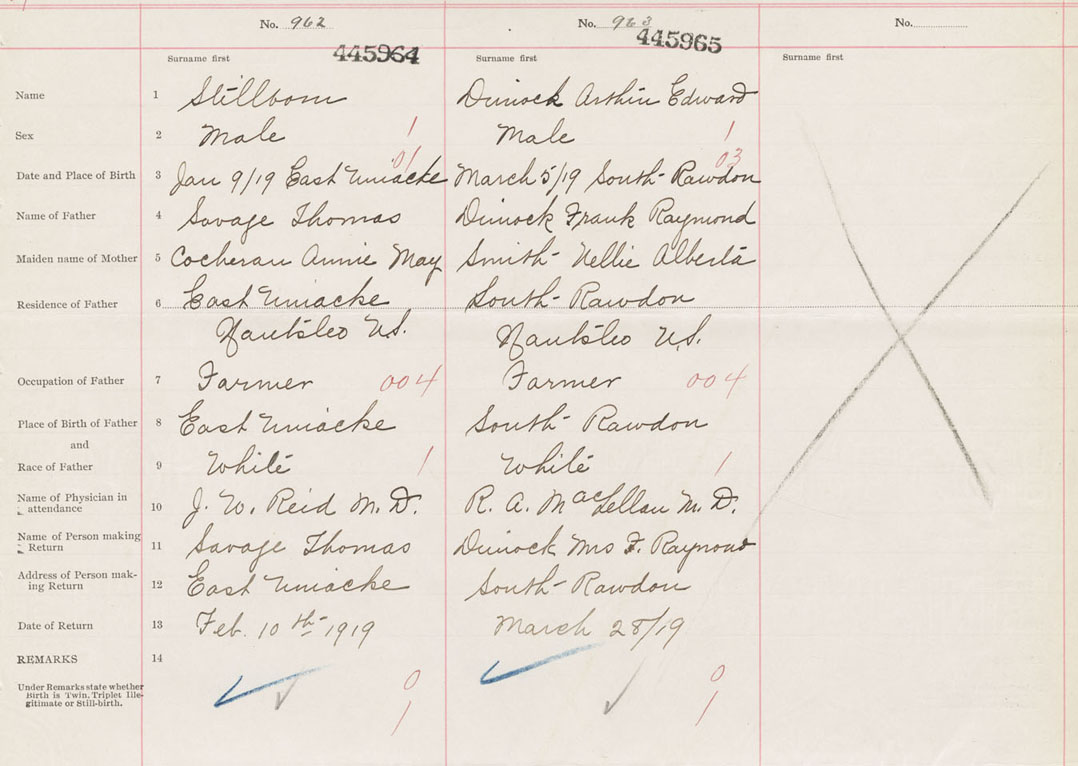 No. 962 No. 963 No.
445964 445965
Surname first Surname first Surname first
Name 1 Stillborn Dimock Arthur Edward
Sex 2 Male 1 Male 1
01 03
Date and Place of Birth 3 Jan 9/19 East Uniacke March 5/19 South Rawdon
Name of Father 4 Savage Thomas Dimock Frank Raymond
Maiden name of Mother 5 Cocheran Annie May Smith Nellie Alberta
Residence of Father 6 East Uniacke South Rawdon
N.S. N.S.
Occupation of Father 7 Farmer 004 Farmer 004
Place of Birth of Father 8 East Uniacke South Rawdon
and
Race of Father 9 White 1 White 1
Name of Physician in
attendance 10 J. W. Reid M.D. R. A. MacLellan M.D.
Name of Person making
Return 11 Savage Thomas Dimock Mrs F. Raymond
Address of Person mak-
ing Return 12 East Uniacke South Rawdon
Date of Return 13 Feb. 10th 1919 March 28/19
REMARKS 14
Under Remarks state whether
Birth is Twin, Triplet Ille-
gitimate or Still-birth.
0 0
1 1